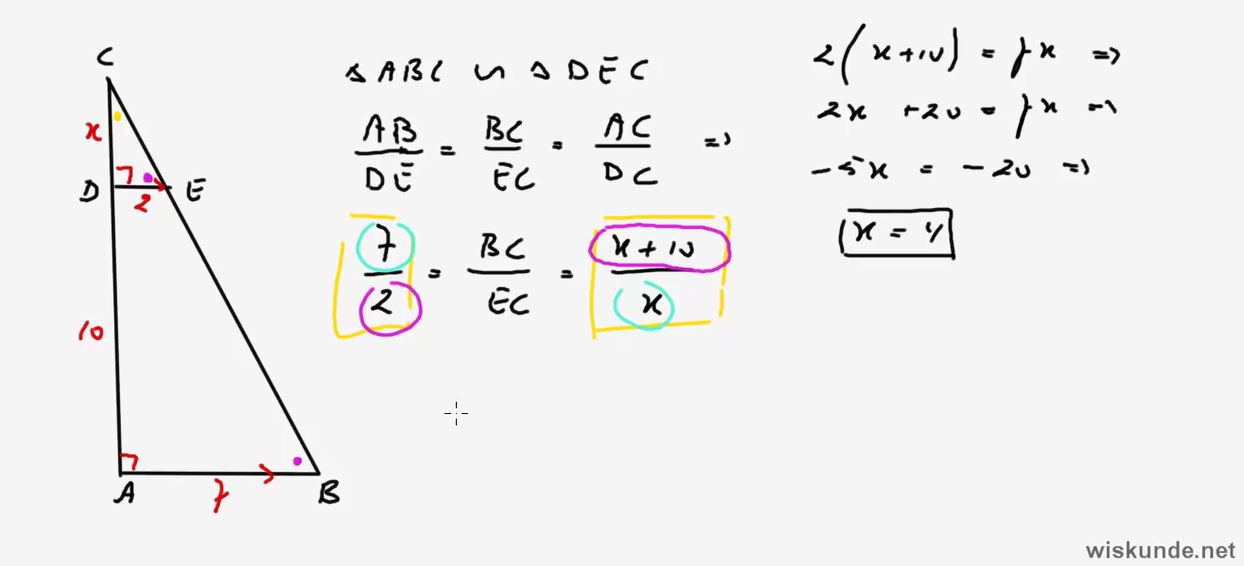 C
x
D
7
2
E
10
A
7
B
△ABC ∽ △DEC
AB/DE = BC/EC = AC/DC ⇒
7/2 = BC/EC = x+10/x
2(x+10) = 7x ⇒
2x + 20 = 7x ⇒
-5x = -20 ⇒
x = 4
wiskunde.net